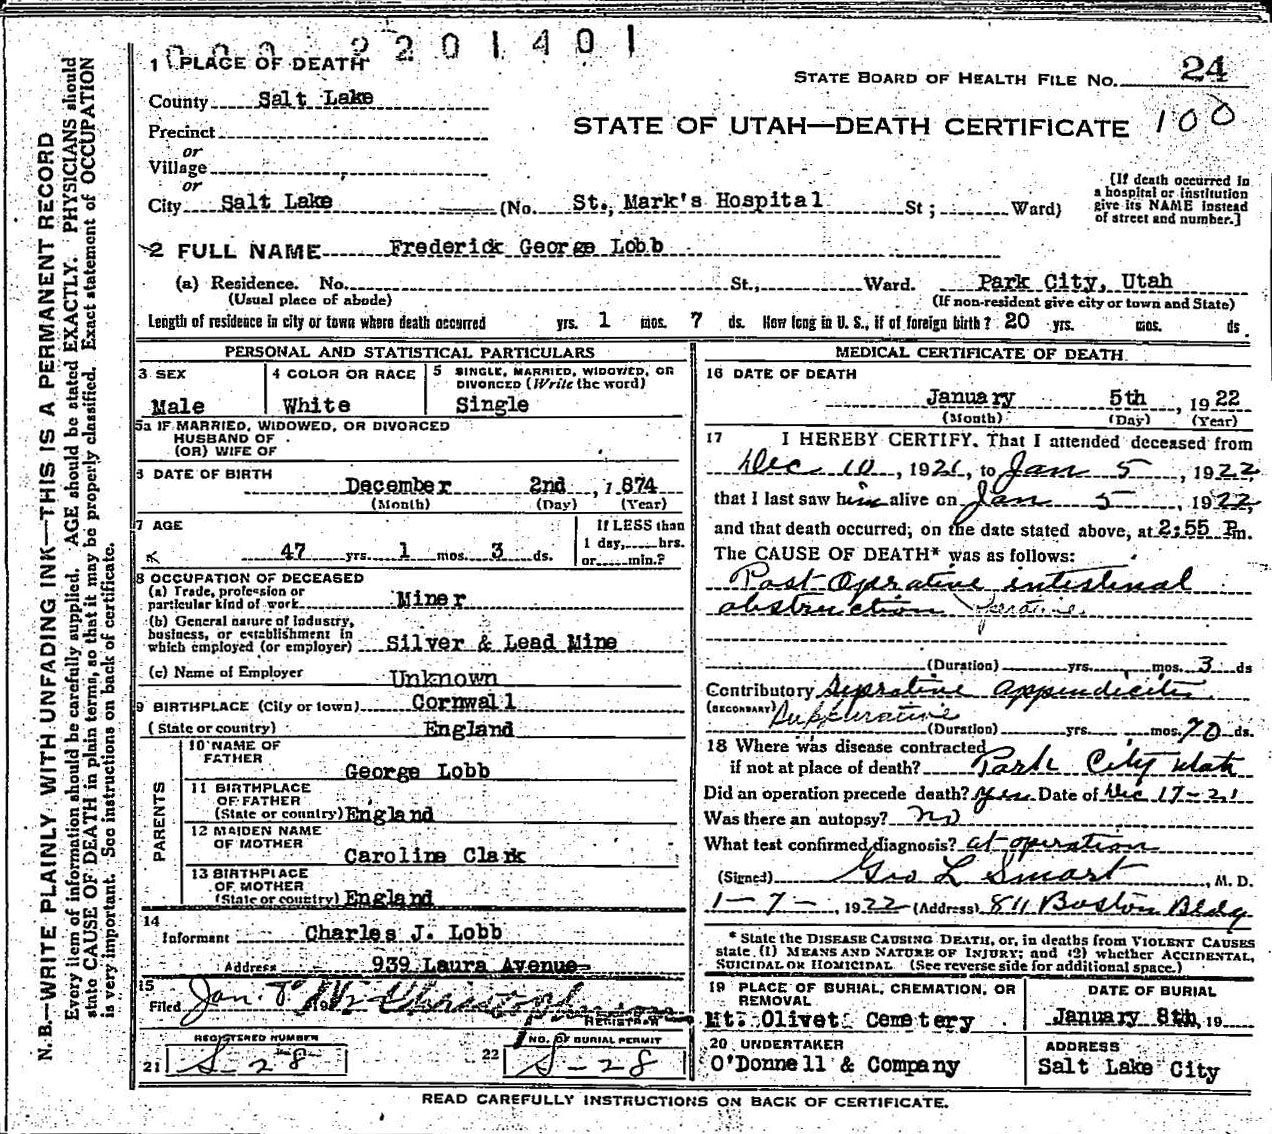 000 2201401
1 PLACE OF DEATH
STATE BOARD OF HEALTH FILE No. 24
County Salt Lake
STATE OF UTAH—DEATH CERTIFICATE 100
Precinct
or
Village
or
City Salt Lake (No. St., Mark's Hospital St; Ward)
[If death occurred in
a hospital or institution
give its NAME instead
of street and number.]
2 FULL NAME Frederick George Lobb
(a) Residence. No. St., Ward. Park City, Utah
(Usual place of abode) (If non-resident give city or town and State)
Length of residence in city or town where death occurred yrs. 1 mos. 7 ds. How long in U. S., if of foreign birth? 20 yrs. mos. ds.
PERSONAL AND STATISTICAL PARTICULARS
3 SEX
Male
4 COLOR OR RACE
White
5 SINGLE, MARRIED, WIDOWED, OR
DIVORCED (Write the word)
Single
5a IF MARRIED, WIDOWED, OR DIVORCED
HUSBAND OF
(OR) WIFE OF
6 DATE OF BIRTH
December 2nd, 1874
(Month) (Day) (Year)
7 AGE
47 yrs. 1 mos. 3 ds.
If LESS than
1 day, hrs.
or min.?
8 OCCUPATION OF DECEASED
(a) Trade, profession or
particular kind of work Miner
(b) General nature of Industry,
business, or establishment in
which employed (or employer) Silver & Lead Mine
(c) Name of Employer Unknown
9 BIRTHPLACE (City or town) Cornwall
(State or country) England
PARENTS
10 NAME OF
FATHER
George Lobb
11 BIRTHPLACE
OF FATHER
(State or country) England
12 MAIDEN NAME
OF MOTHER
Caroline Clark
13 BIRTHPLACE
OF MOTHER
(State or country) England
14
Informant Charles J. Lobb
Address 939 Laura Avenue
15
Filed Jan.
REGISTRAR
REGISTERED NUMBER
21 S-28
NO. OF BURIAL PERMIT
22 S-28
MEDICAL CERTIFICATE OF DEATH
16 DATE OF DEATH
January 5th, 1922
(Month) (Day) (Year)
17 I HEREBY CERTIFY, That I attended deceased from
Dec 10, 1921, to Jan 5, 1922,
that I last saw him alive on Jan 5, 1922,
and that death occurred, on the date stated above, at 2:55 Pm.
The CAUSE OF DEATH* was as follows:
Post-Operative intestinal
obstruction
(Duration) yrs. mos. 3 ds
Contributory Supurative appendicitis
(SECONDARY) Suppurative
(Duration) yrs. mos. 20 ds.
18 Where was disease contracted
if not at place of death? Park City Utah
Did an operation precede death? yes Date of Dec 17-21
Was there an autopsy? no
What test confirmed diagnosis? at operation
(Signed) Geo L Smart, M. D.
1-7-, 1922 (Address) 811 Boston Bldg
* State the DISEASE CAUSING DEATH, or, in deaths from VIOLENT CAUSES
state (1) MEANS AND NATURE OF INJURY; and (2) whether ACCIDENTAL,
SUICIDAL OR HOMICIDAL (See reverse side for additional space.)
19 PLACE OF BURIAL, CREMATION, OR
REMOVAL
Mt. Olivet Cemetery
DATE OF BURIAL
January 8th, 19
20 UNDERTAKER
O'Donnell & Company
ADDRESS
Salt Lake City
READ CAREFULLY INSTRUCTIONS ON BACK OF CERTIFICATE.
N. B.—WRITE PLAINLY, WITH UNFADING INK—THIS IS A PERMANENT RECORD
Every item of information should be carefully supplied. AGE should be stated EXACTLY. PHYSICIANS should
state CAUSE OF DEATH in plain terms, so that it may be properly classified. Exact statement of OCCUPATION
is very important. See instructions on back of certificate.